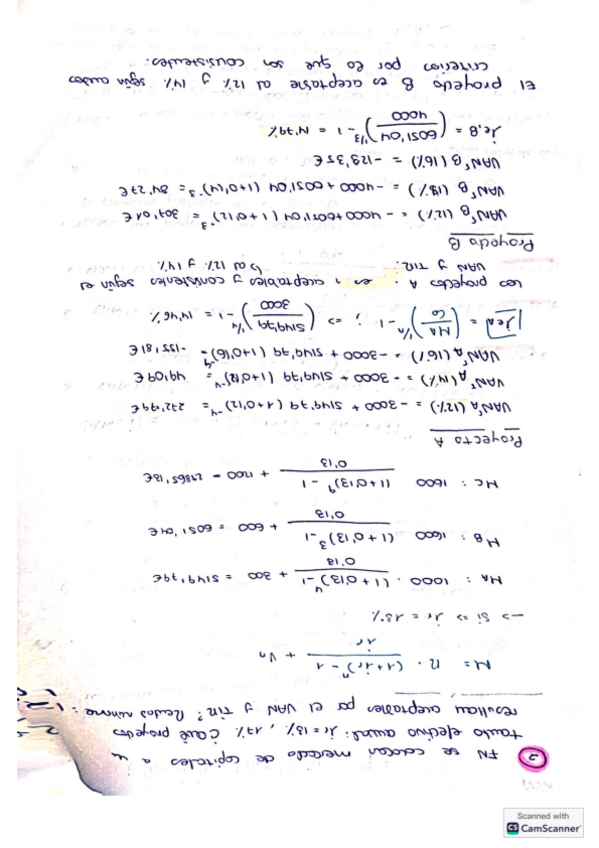 ② FN se colocan mercado de capitales a un
tanto efectivo anual: ir = 13%, 17% ¿Qué proyectos
resultan aceptables por el VAN y TIR?
M = R · (1+ir)ⁿ - 1 / ir + Vn
-> Si => ir = 13%
MA : 1000 · (1+0,13)⁴-1 / 0,13 + 300 = 5149,79€
MB : 1600 (1+0,13)³-1 / 0,13 + 600 = 6051,04€
MC : 1600 (1+0,13)⁹ - 1 / 0,13 + 1200 =
Proyecto A
VANʳA (12%) = -3000 + 5149,79 (1+0,12)⁻⁴ = 272,79€
VANʳA (14%) = -3000 + 5149,79 = 49,09€
VANʳA (16%) = -3000 + 5149,79 (1+0,16)⁻⁴ = -155,81€
= (MA / C0)^1/n - 1 ; => (5149,79 / 3000)^1/4 - 1 = 14,46%
Los proyectos A. aceptables y consistentes según el
VAN y TIR. al 12% y 14%
Proyecto B
VANʳB (12%) = -4000 + 6051,04 (1+0,12)⁻³ = 307,01€
VANʳB = -4000 + 6051,04 (1+0,14)⁻³ = 84,27€
VANʳB (16%) = -128,35€
ir,B = (6051,04 / 4000)^1/3 - 1 = 14,79%
El proyecto B es aceptable al 12% y 14% según ambos
criterios por lo que son consistentes.
Scanned with
CS CamScanner